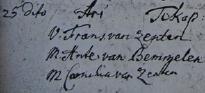 25 dito Ari Tokap
V. Frans van Zenten
M. Ante van Bemmelen
M Cornelia van Zenten